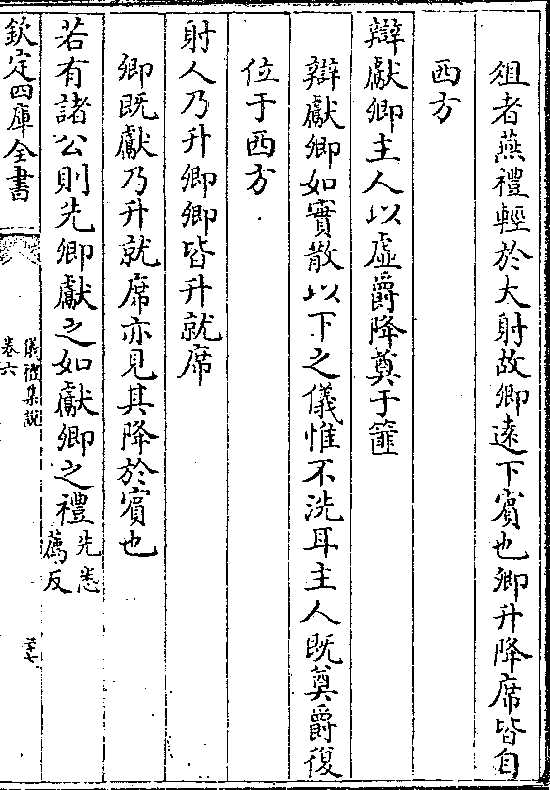 俎者燕禮輕於大射故卿遠下賓也卿升降席皆自
西方
辯獻卿主人以虛爵降奠于篚
辯獻卿如賓散以下之儀惟不洗耳主人既奠爵復
位于西方
射人乃升卿卿皆升就席
卿既獻乃升就席亦見其降於賓也
若有諸公則先卿獻之如獻卿之禮先悉
薦反
欽定四庫全書
儀禮集說
卷六